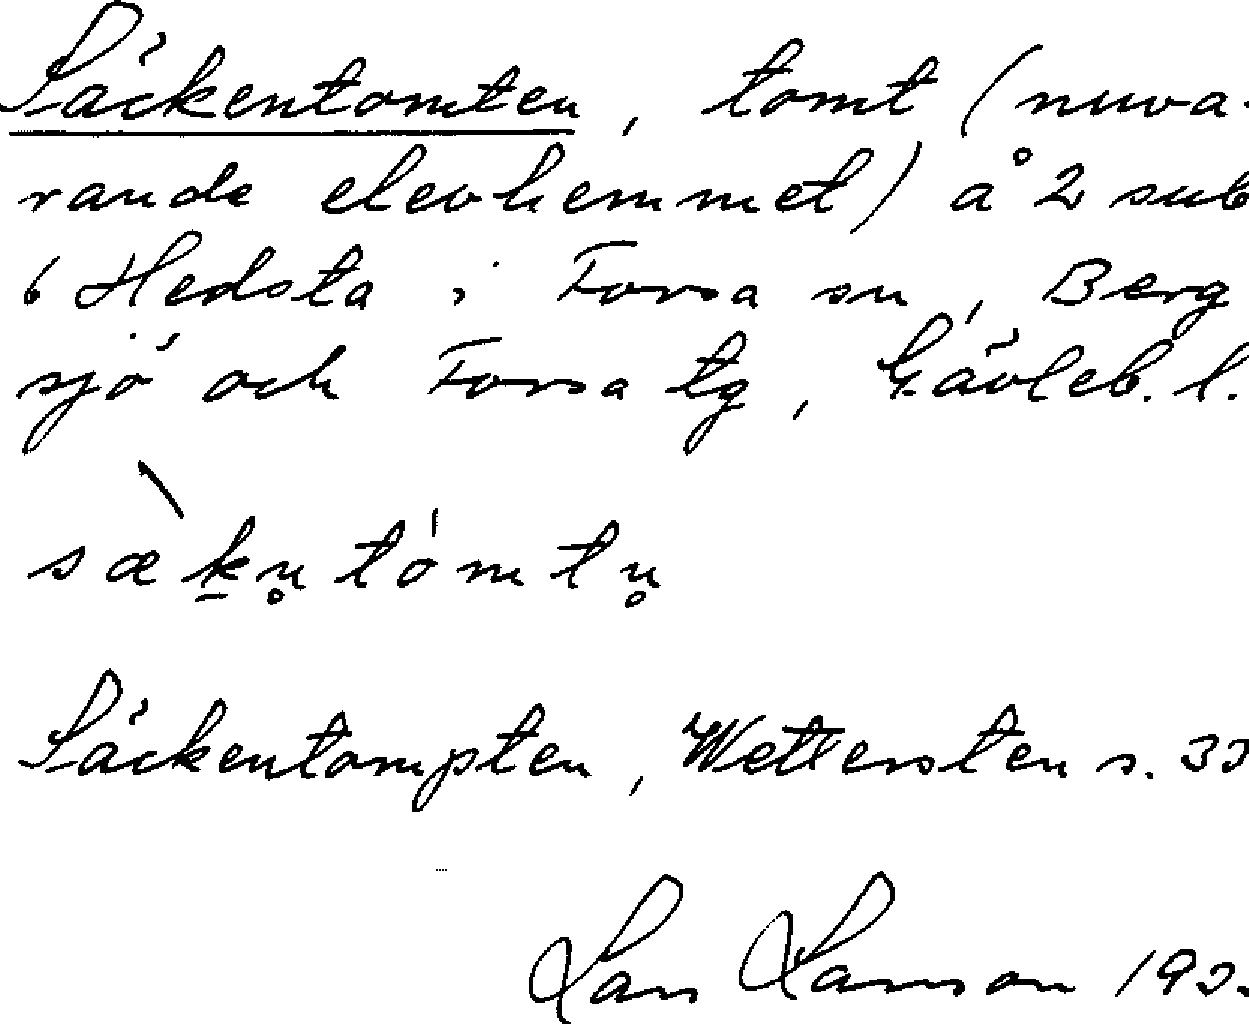 Säckentomten, tomt (nuva-
rande elevhemmet) å 2 sub
6 Hedsta i Forsa sn, Berg
sjö och Forsa tg, Gävleb. l.
sækn̥tómtn̥
Säckentompten, Wettersten s. 33
Lars Larsson